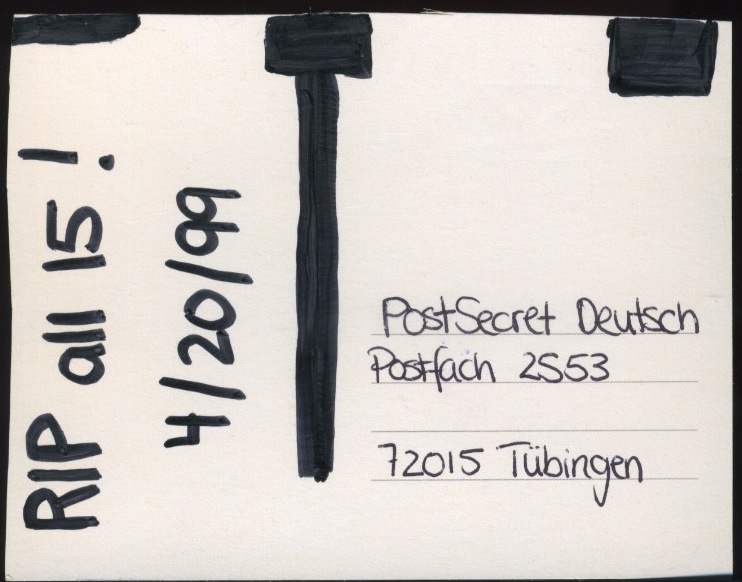 RIP all 15!
4/20/99
PostSecret Deutsch
Postfach 2553
72015 Tübingen